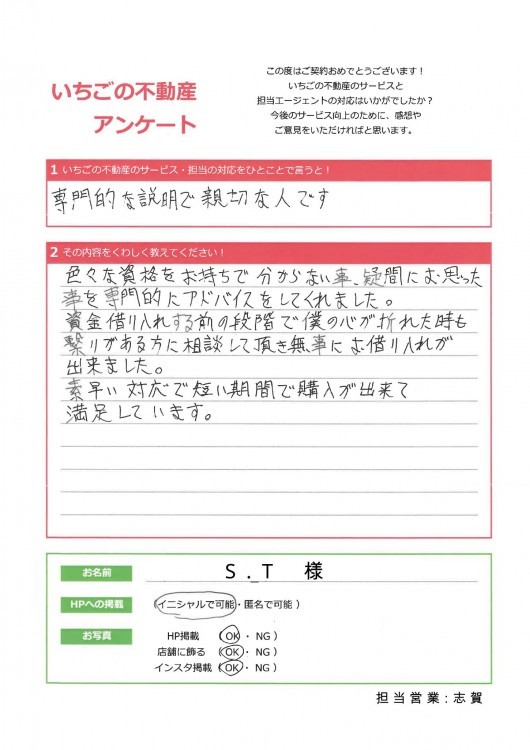 いちごの不動産
アンケート
この度はご契約おめでとうございます！
いちごの不動産のサービスと
担当エージェントの対応はいかがでしたか？
今後のサービス向上のために、感想や
ご意見をいただければと思います。
1 いちごの不動産のサービス・担当の対応をひとことで言うと！
専門的な説明で親切な人です
2 その内容をくわしく教えてください！
色々な資格をお持ちで分からない事、疑問にお思った
事を専門的にアドバイスをしてくれました。
資金借り入れする前の段階で僕の心が折れた時も
繋りがある方に相談して頂き無事にお借り入れが
出来ました。
素早い対応で短い期間で購入が出来て
満足しています。
お名前 S.T 様
HPへの掲載 （イニシャルで可能・匿名で可能）
お写真 HP掲載 （OK・NG）
店舗に飾る （OK・NG）
インスタ掲載 （OK・NG）
担当営業：志賀